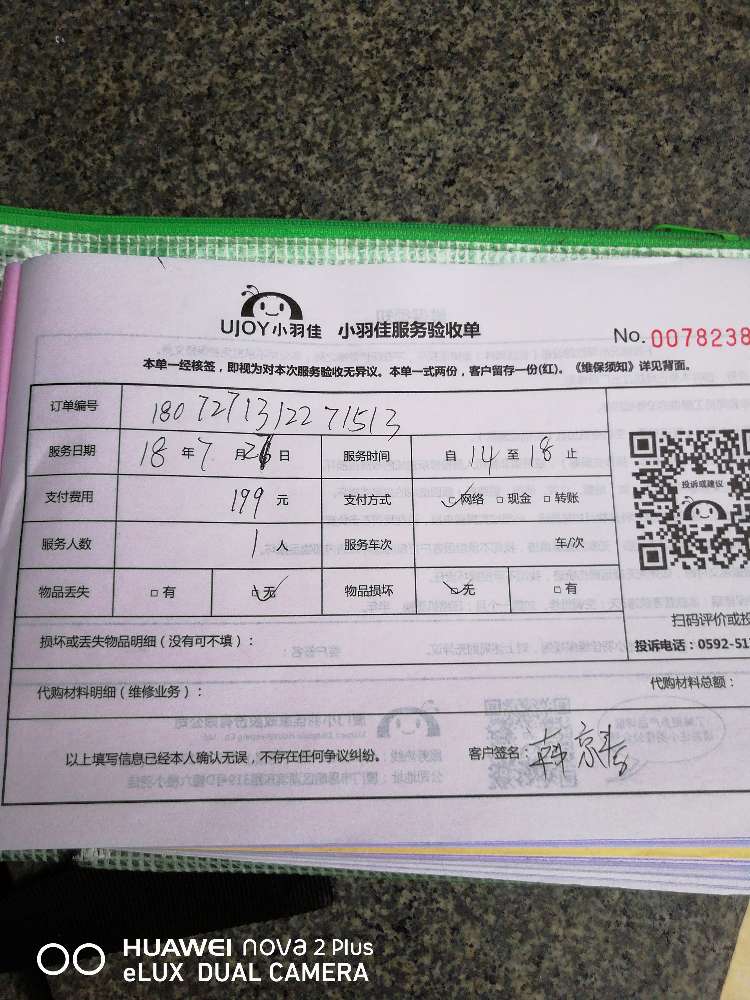 UJOY小羽佳 小羽佳服务验收单
No. 0078238
本单一经核签，即视为对本次服务验收无异议。本单一式两份，客户留存一份(红)。《维保须知》详见背面。
订单编号 180727131227 1513
服务日期 18 年 7 月 26 日 服务时间 自 14 至 18 止
投诉或建议
支付费用 199 元 支付方式 网络 现金 转账
服务人数 1 人 服务车次 车/次
物品丢失 有 无 物品损坏 无 有
扫码评价或投
损坏或丢失物品明细（没有可不填）：
投诉电话：0592-51
代购材料明细（维修业务）：
代购材料总额：
以上填写信息已经本人确认无误，不存在任何争议纠纷。 客户签名：
HUAWEI nova 2 Plus
eLUX DUAL CAMERA